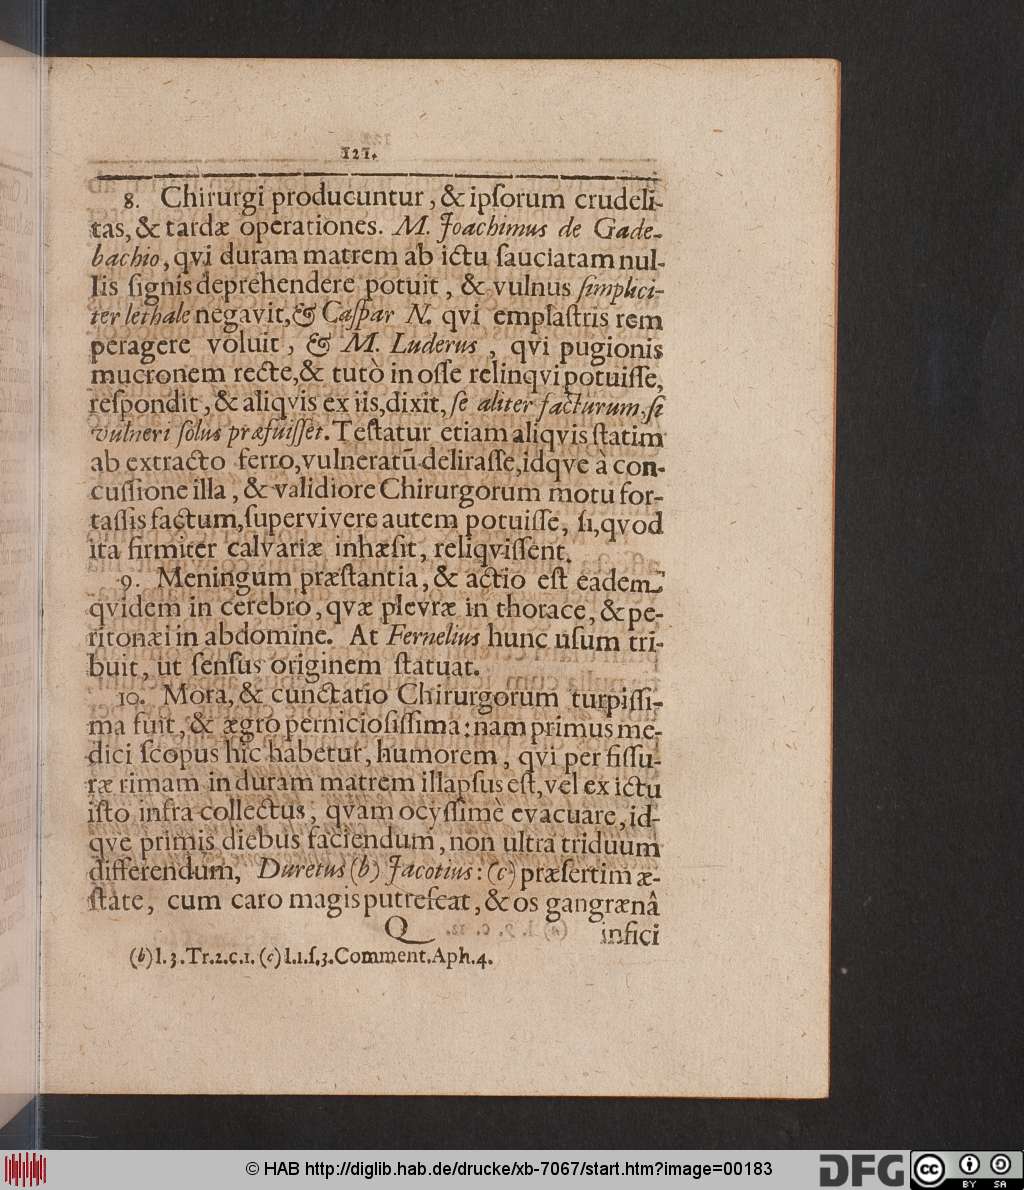 121.
8. Chirurgi producuntur, & ipſorum crudeli-
tas, & tardæ operationes. M. Joachimus de Gade-
bachio, qvi duram matrem ab ictu ſauciatam nul-
lis ſignis deprehendere potuit, & vulnus ſimplici-
ter lethale negavit, & Caſpar N. qvi emplaſtris rem
peragere voluit, & M. Luderus, qvi pugionis
mucronem recte, & tutò in oſſe relinqvi potuiſſe,
reſpondit, & aliqvis ex iis, dixit, ſe aliter facturum, ſi
vulneri ſolus præfuiſſet. Teſtatur etiam aliqvis ſtatim
ab extracto ferro, vulneratũ deliraſſe, idqve à con-
cuſſione illa, & validiore Chirurgorum motu for-
taſſis factum, ſupervivere autem potuiſſe, ſi, qvod
ita firmiter calvariæ inhæſit, reliqviſſent.
9. Meningum præſtantia, & actio eſt eadem
qvidem in cerebro, qvæ plevræ in thorace, & pe-
ritonæi in abdomine. At Fernelius hunc uſum tri-
buit, ut ſenſus originem ſtatuat.
10. Mora, & cunctatio Chirurgorum turpiſſi-
ma fuit, & ægro pernicioſiſſima: nam primus me-
dici ſcopus hîc habetur, humorem, qvi per fiſſu-
ræ rimam in duram matrem illapſus eſt, vel ex ictu
iſto infra collectus, qvam ocyſſimè evacuare, id-
qve primis diebus faciendum, non ultra triduum
differendum, Duretus (b) Jacotius: (c) præſertim æ-
ſtate, cum caro magis putreſcat, & os gangrænâ
Q infici
(b) l. 3. Tr. 2. c. 1. (c) l. 1. ſ. 3. Comment. Aph. 4.
© HAB http://diglib.hab.de/drucke/xb-7067/start.htm?image=00183
DFG cc BY SA